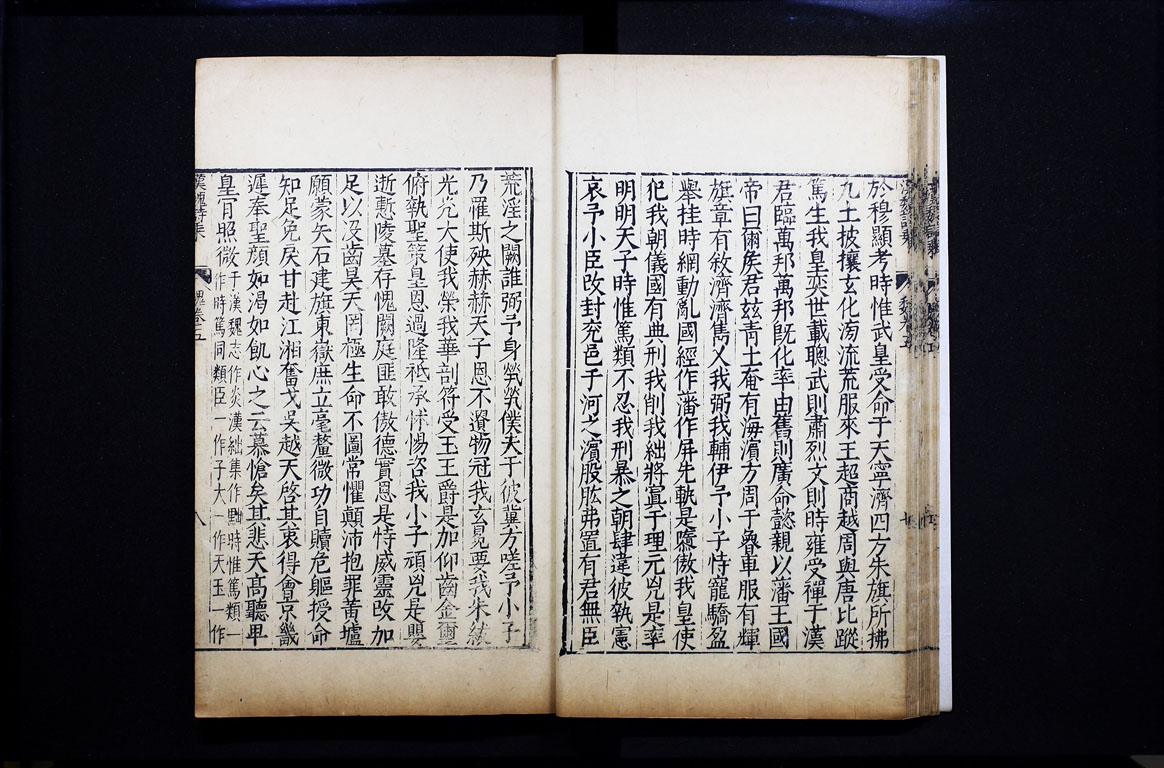 於穆顯考時惟武皇受命于天寧濟四方朱旗所拂
九土披攘玄化滂流荒服來王超商越周與唐比蹤
篤生我皇奕世載聰武則肅烈文則時雍受禪于漢
君臨萬邦萬邦旣化率由舊則廣命懿親以藩王國
帝曰爾矦君玆靑土奄有海濱方周于魯車服有輝
旗章有敘濟濟雋乂我弼我輔伊予小子恃寵驕盈
舉挂時網動亂國經作藩作屏先軌是隳傲我皇使
犯我朝儀國有典刑我削我絀將寘于理元兇是率
明明天子時惟篤類不忍我刑暴之朝肆違彼執憲
哀予小臣改封兖邑于河之濱股肱弗置有君無臣
荒淫之闕誰弼予身煢煢僕夫于彼冀方嗟予小子
乃罹斯殃赫赫天子恩不遺物冠我玄冕要我朱紱
光光大使我榮我華剖符受玉王爵是加仰齒金璽
俯執聖策皇恩過隆祗承怵惕咨我小子頑兇是嬰
逝慙陵墓存愧闕庭匪敢傲德實恩是恃威靈改加
足以沒齒昊天罔極生命不圖常懼顛沛抱罪黃壚
願蒙矢石建旗東嶽庶立毫釐微功自贖危軀授命
知足免戾甘赴江湘奮戈吳越天啓其衷得會京畿
遲奉聖顔如渴如飢心之云慕愴矣其悲天高聽卑
皇肯照微于漢魏志作炎漢絀集作黜時惟篤類一
作時篤同類臣一作子大一作天玉一作
漢魏詩集 魏卷五 八